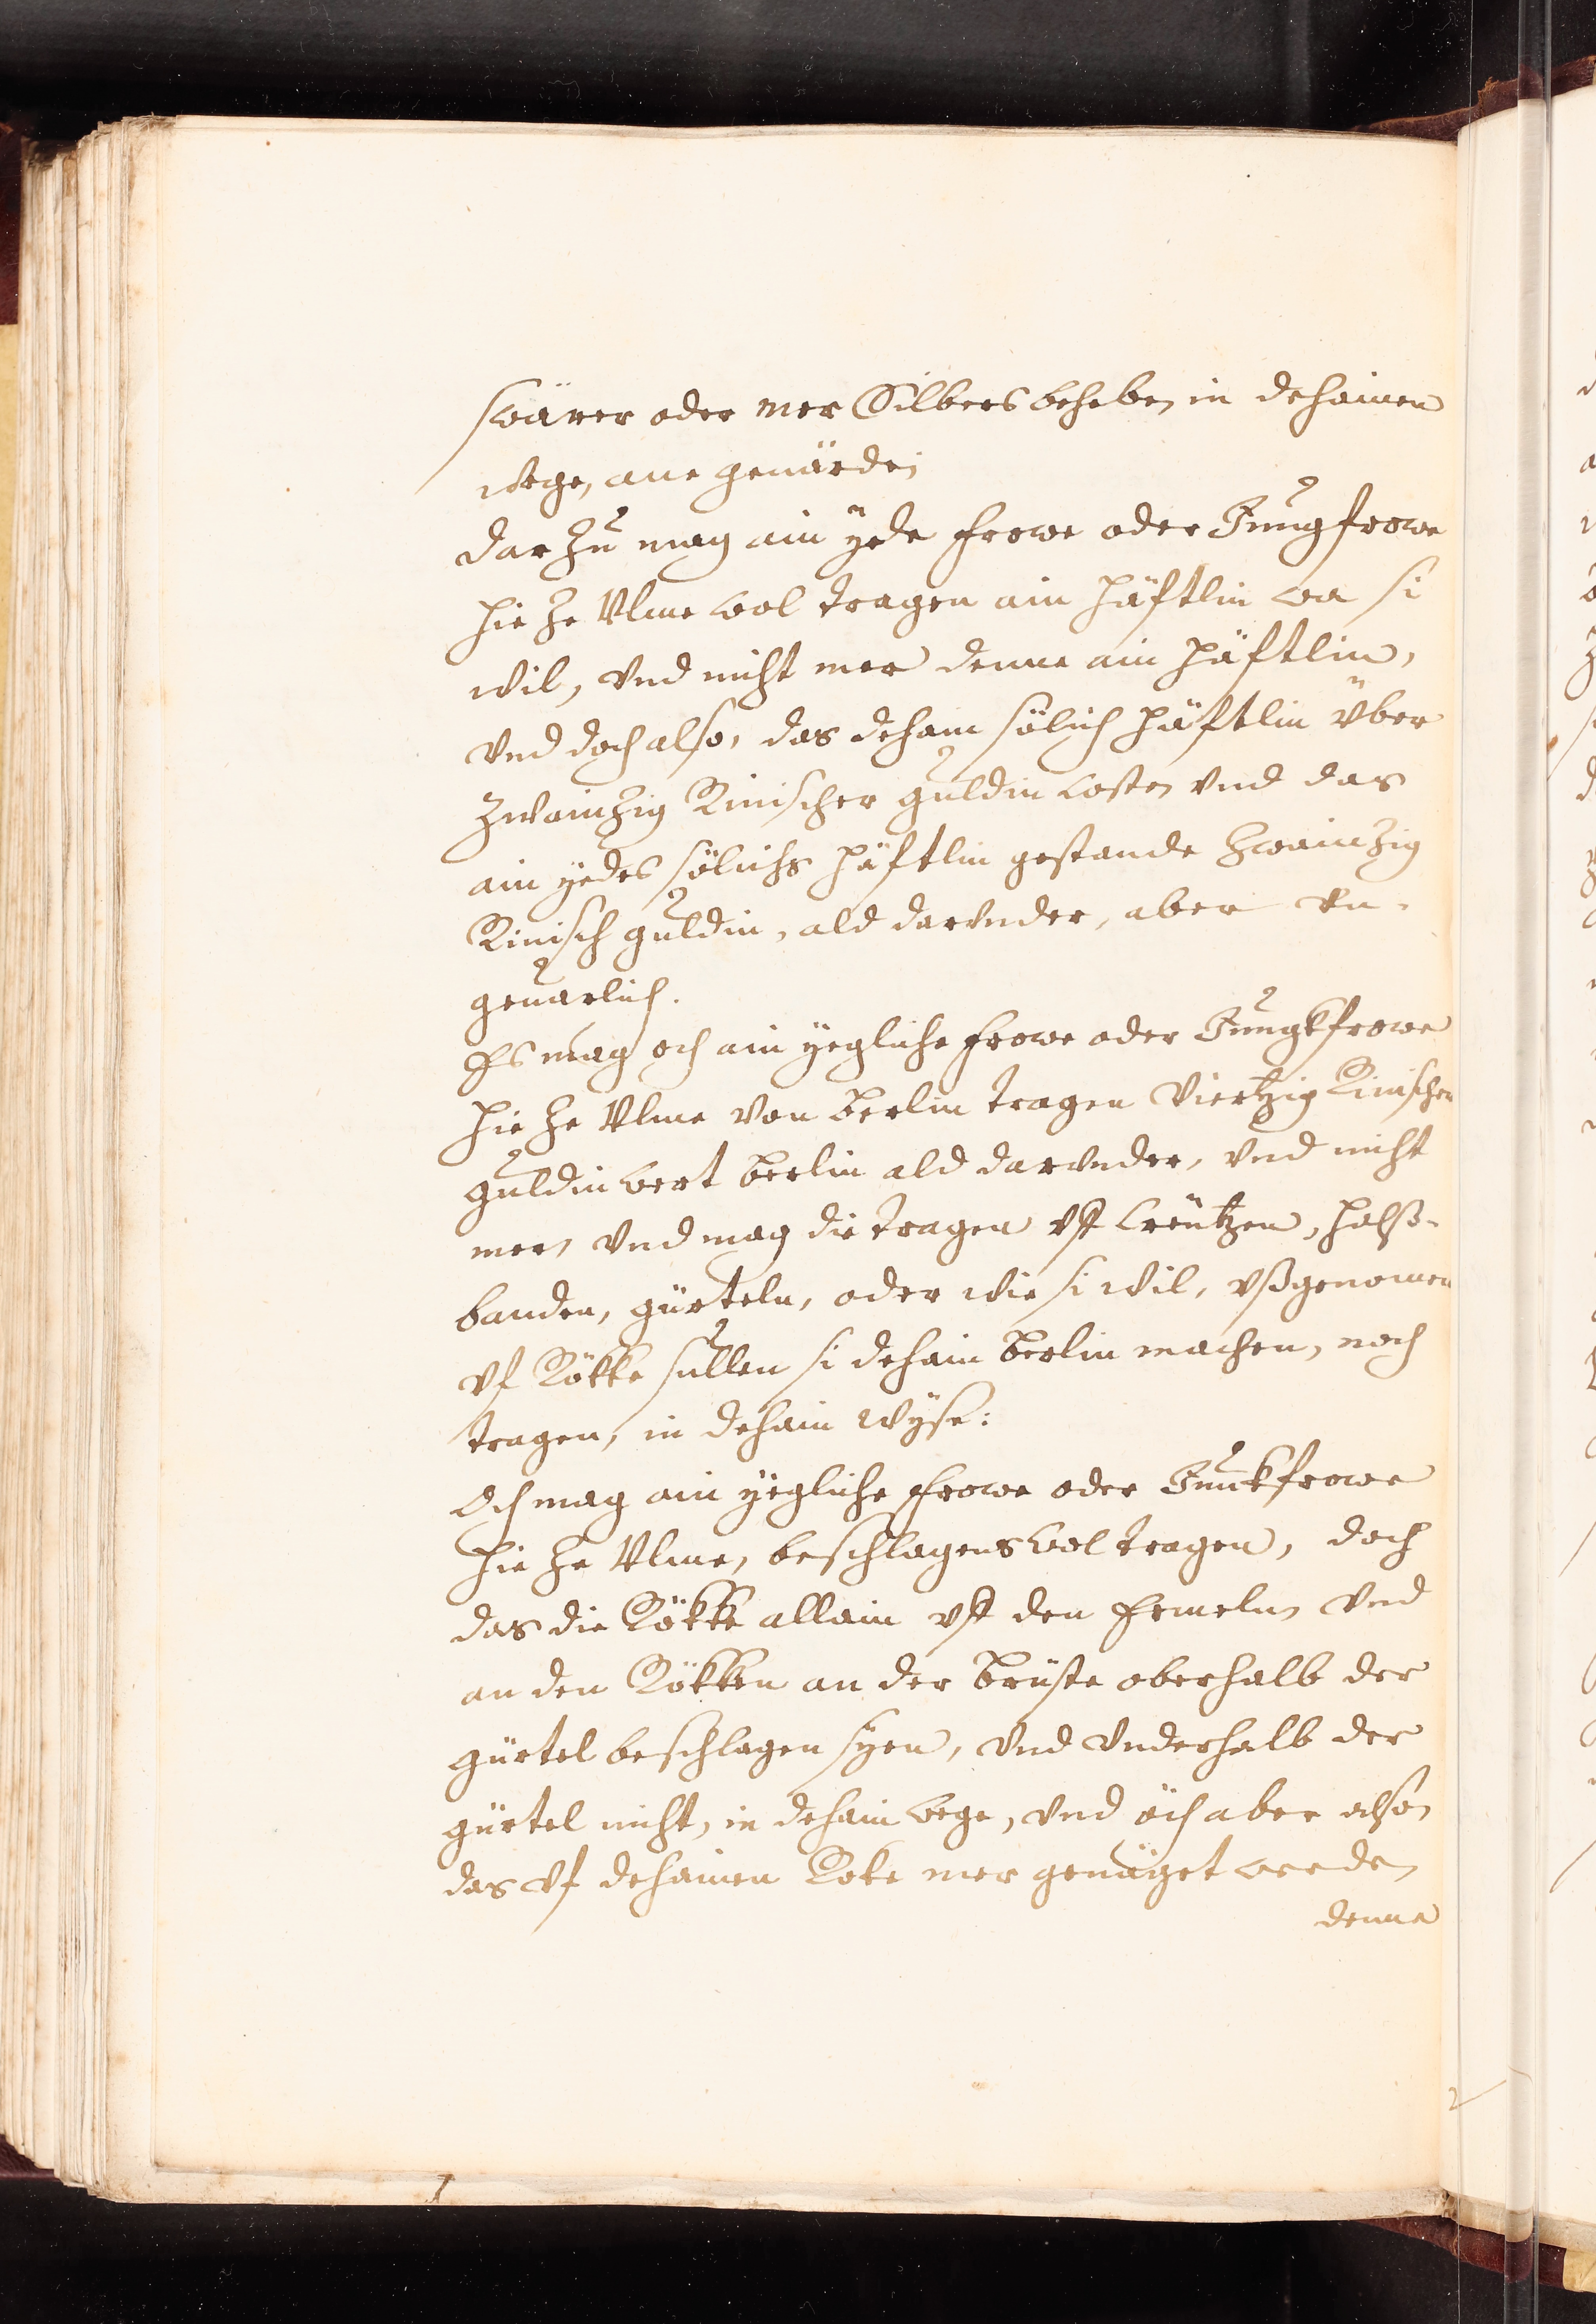 swärer oder mer Silbers behaben in dehainen
wege, ane geuärde;
dar zů mag ain ÿede frowe oder Jungfrowe
hie ze Ulme wol tragen ain häftlin wa si
wil, vnd nicht mer denne ain häftlin,
vnd doch also, das dehain sölich häftlin über
zwainzig Rinischer guldin costen vnd das
ain yedes sölichs häftlin gestande zwainzig
Rinisch guldin, ald darvnder, aber vn-
geuarlich.
Es mag och ain yegliche frowe oder Jungkfrowe
hie ze Ulme von berlin tragen viertzig Rinischer
guldin wert berlin ald darvnder, vnd nicht
mer, vnd mag die tragen vff Creützen, halß-
banden, gürteln, oder wie si wil, vßgenomen
vf Rökke sullen si dehain berlin machen, noch
tragen, in dehain wÿse:
Och mag ain yegliche frowe oder Junckfrowe
hie ze Ulme, beschlagens wol tragen, doch
das die Rökke allain vff den Ermeln vnd
an den Rökken an der brüste oberhalb der
gürtel beschlagen syen, vnd vnderhalb der
gürtel nicht, in dehain wege, vnd öch aber also,
das vf dehainen Roke mer genäget werden
denne